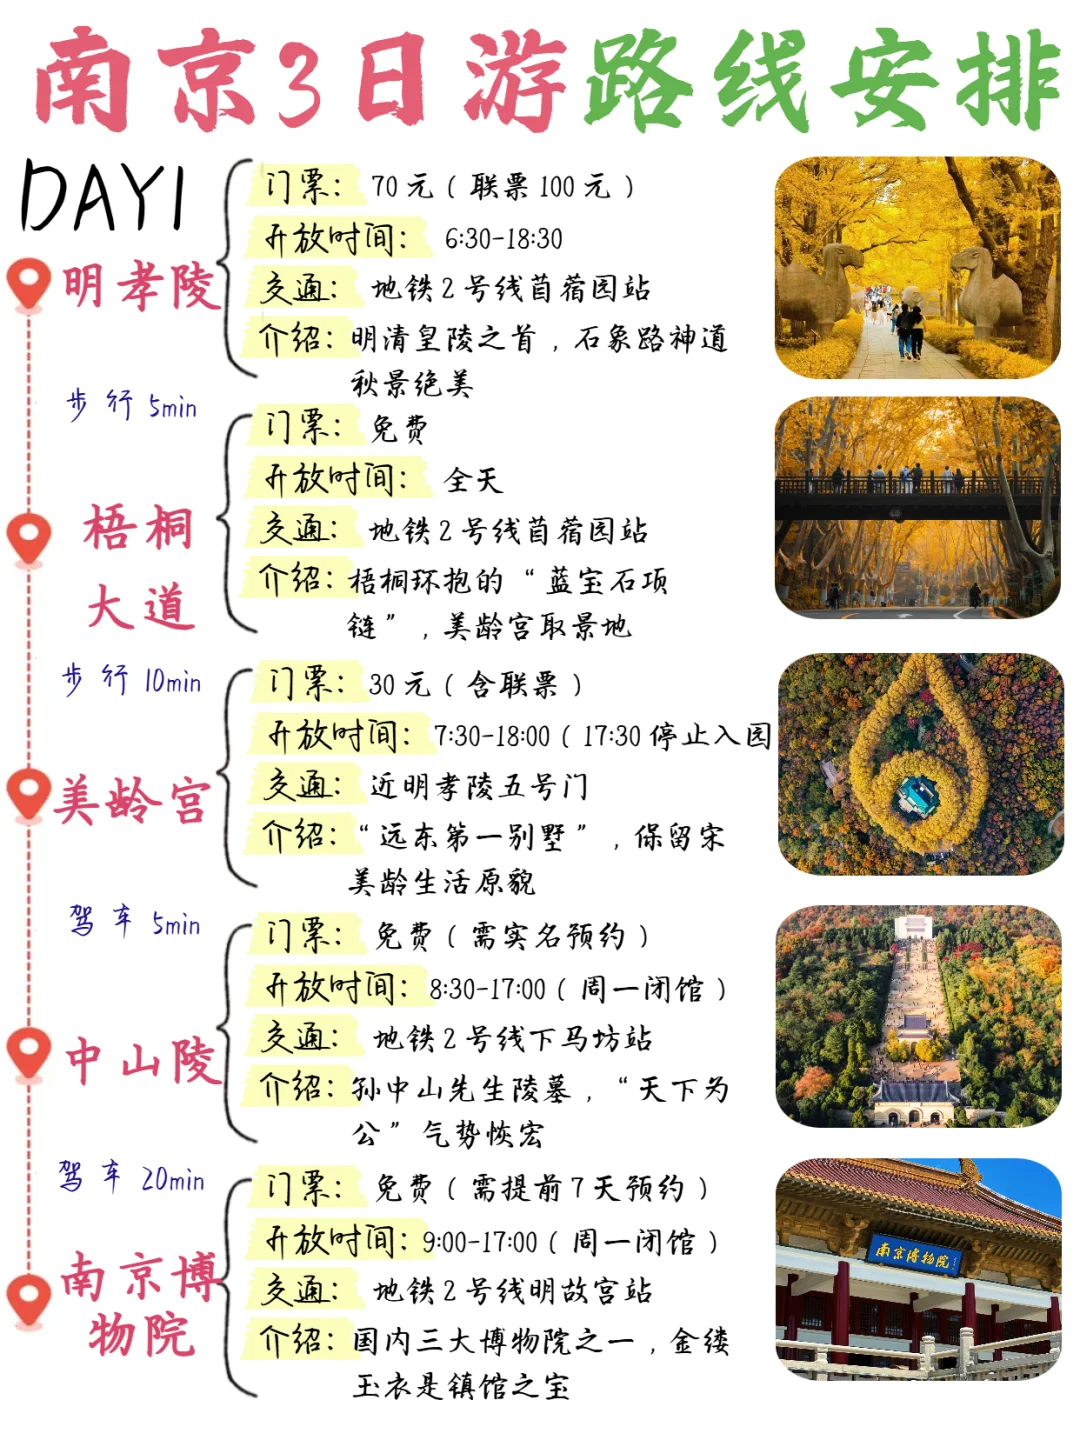 南京3日游路线安排
DAY1
明孝陵
门票： 70元（联票100元）
开放时间： 6:30-18:30
交通： 地铁2号线苜蓿园站
介绍：明清皇陵之首，石象路神道
秋景绝美
步行 5min
梧桐
大道
门票： 免费
开放时间： 全天
交通： 地铁2号线苜蓿园站
介绍：梧桐环抱的“蓝宝石项
链”，美龄宫取景地
步行 10min
美龄宫
门票：30元（含联票）
开放时间：7:30-18:00（17:30停止入园
交通： 近明孝陵五号门
介绍：“远东第一别墅”，保留宋
美龄生活原貌
驾车 5min
中山陵
门票： 免费（需实名预约）
开放时间：8:30-17:00（周一闭馆）
交通： 地铁2号线下马坊站
介绍：孙中山先生陵墓，“天下为
公”气势恢宏
驾车 20min
南京博
物院
门票： 免费（需提前7天预约）
开放时间：9:00-17:00（周一闭馆）
交通： 地铁2号线明故宫站
介绍：国内三大博物院之一，金缕
玉衣是镇馆之宝
南京博物院